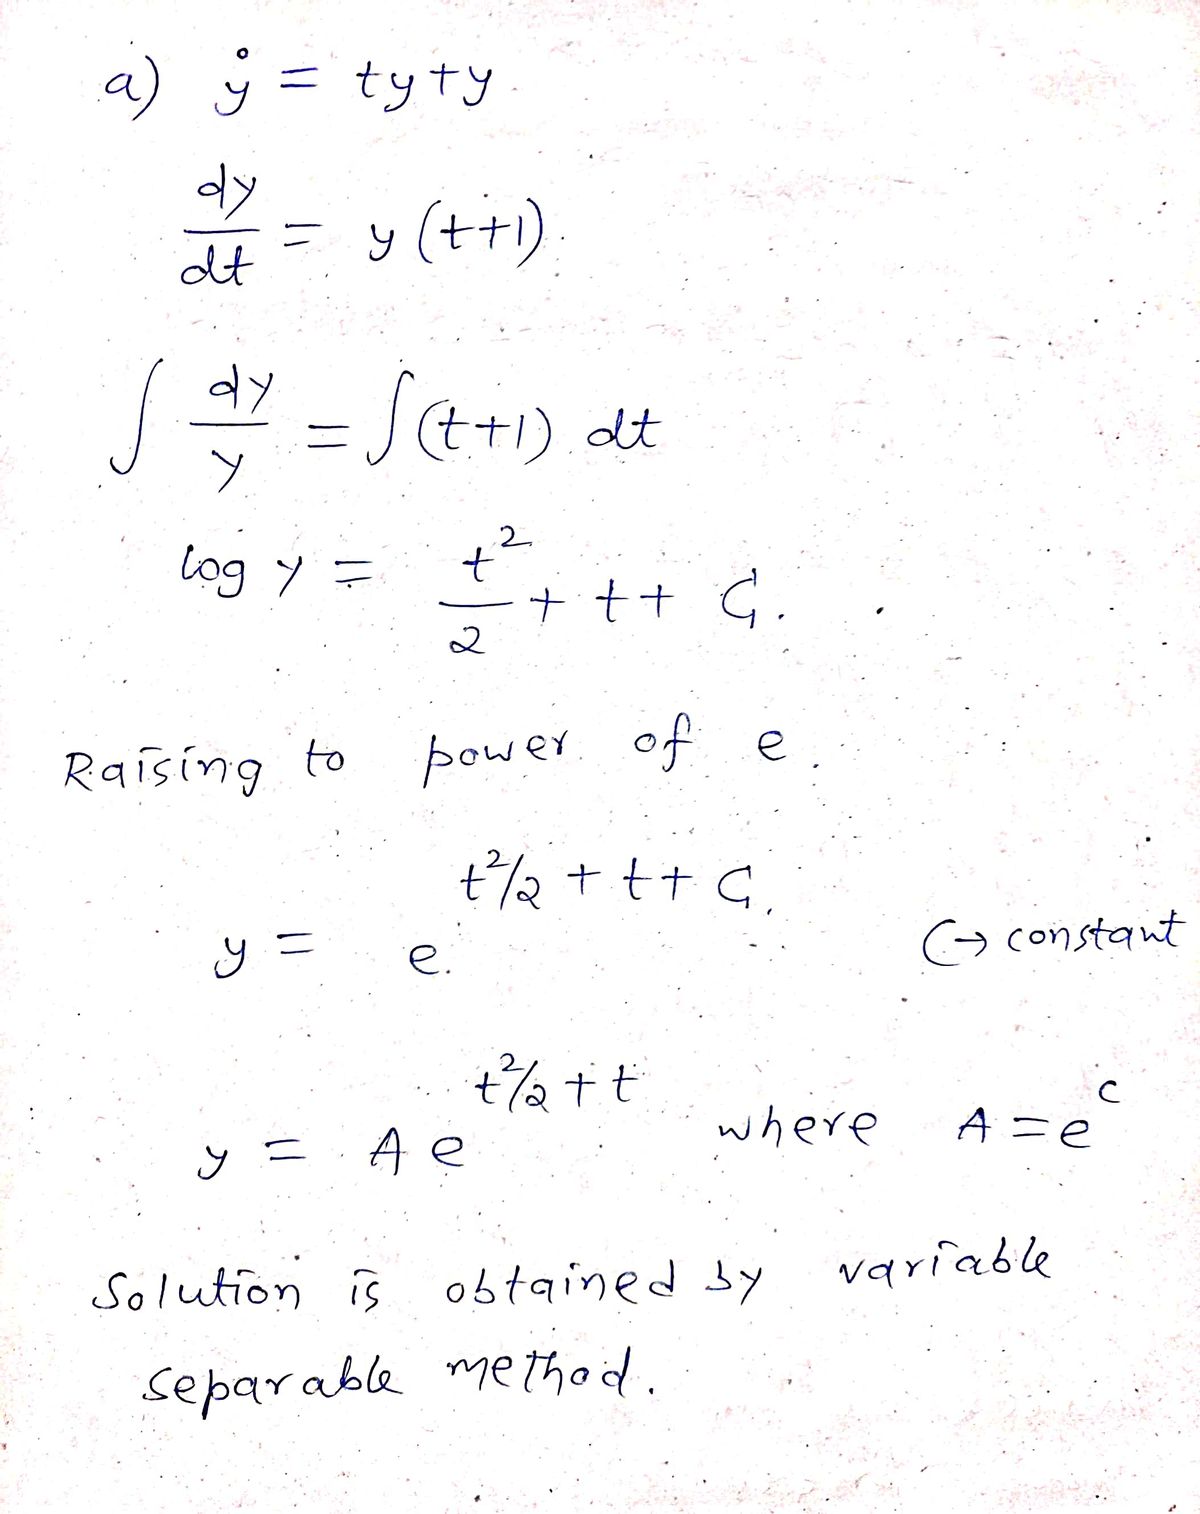 a) ẏ = ty+y
dy/dt = y (t+1)
∫ dy/y = ∫(t+1) dt
log y = t²/2 + t + C₁.
Raising to power of e.
y = e^(t²/2 + t + C₁) C→ constant
y = A e^(t²/2 + t) where A = e^c
Solution is obtained by variable
separable method.